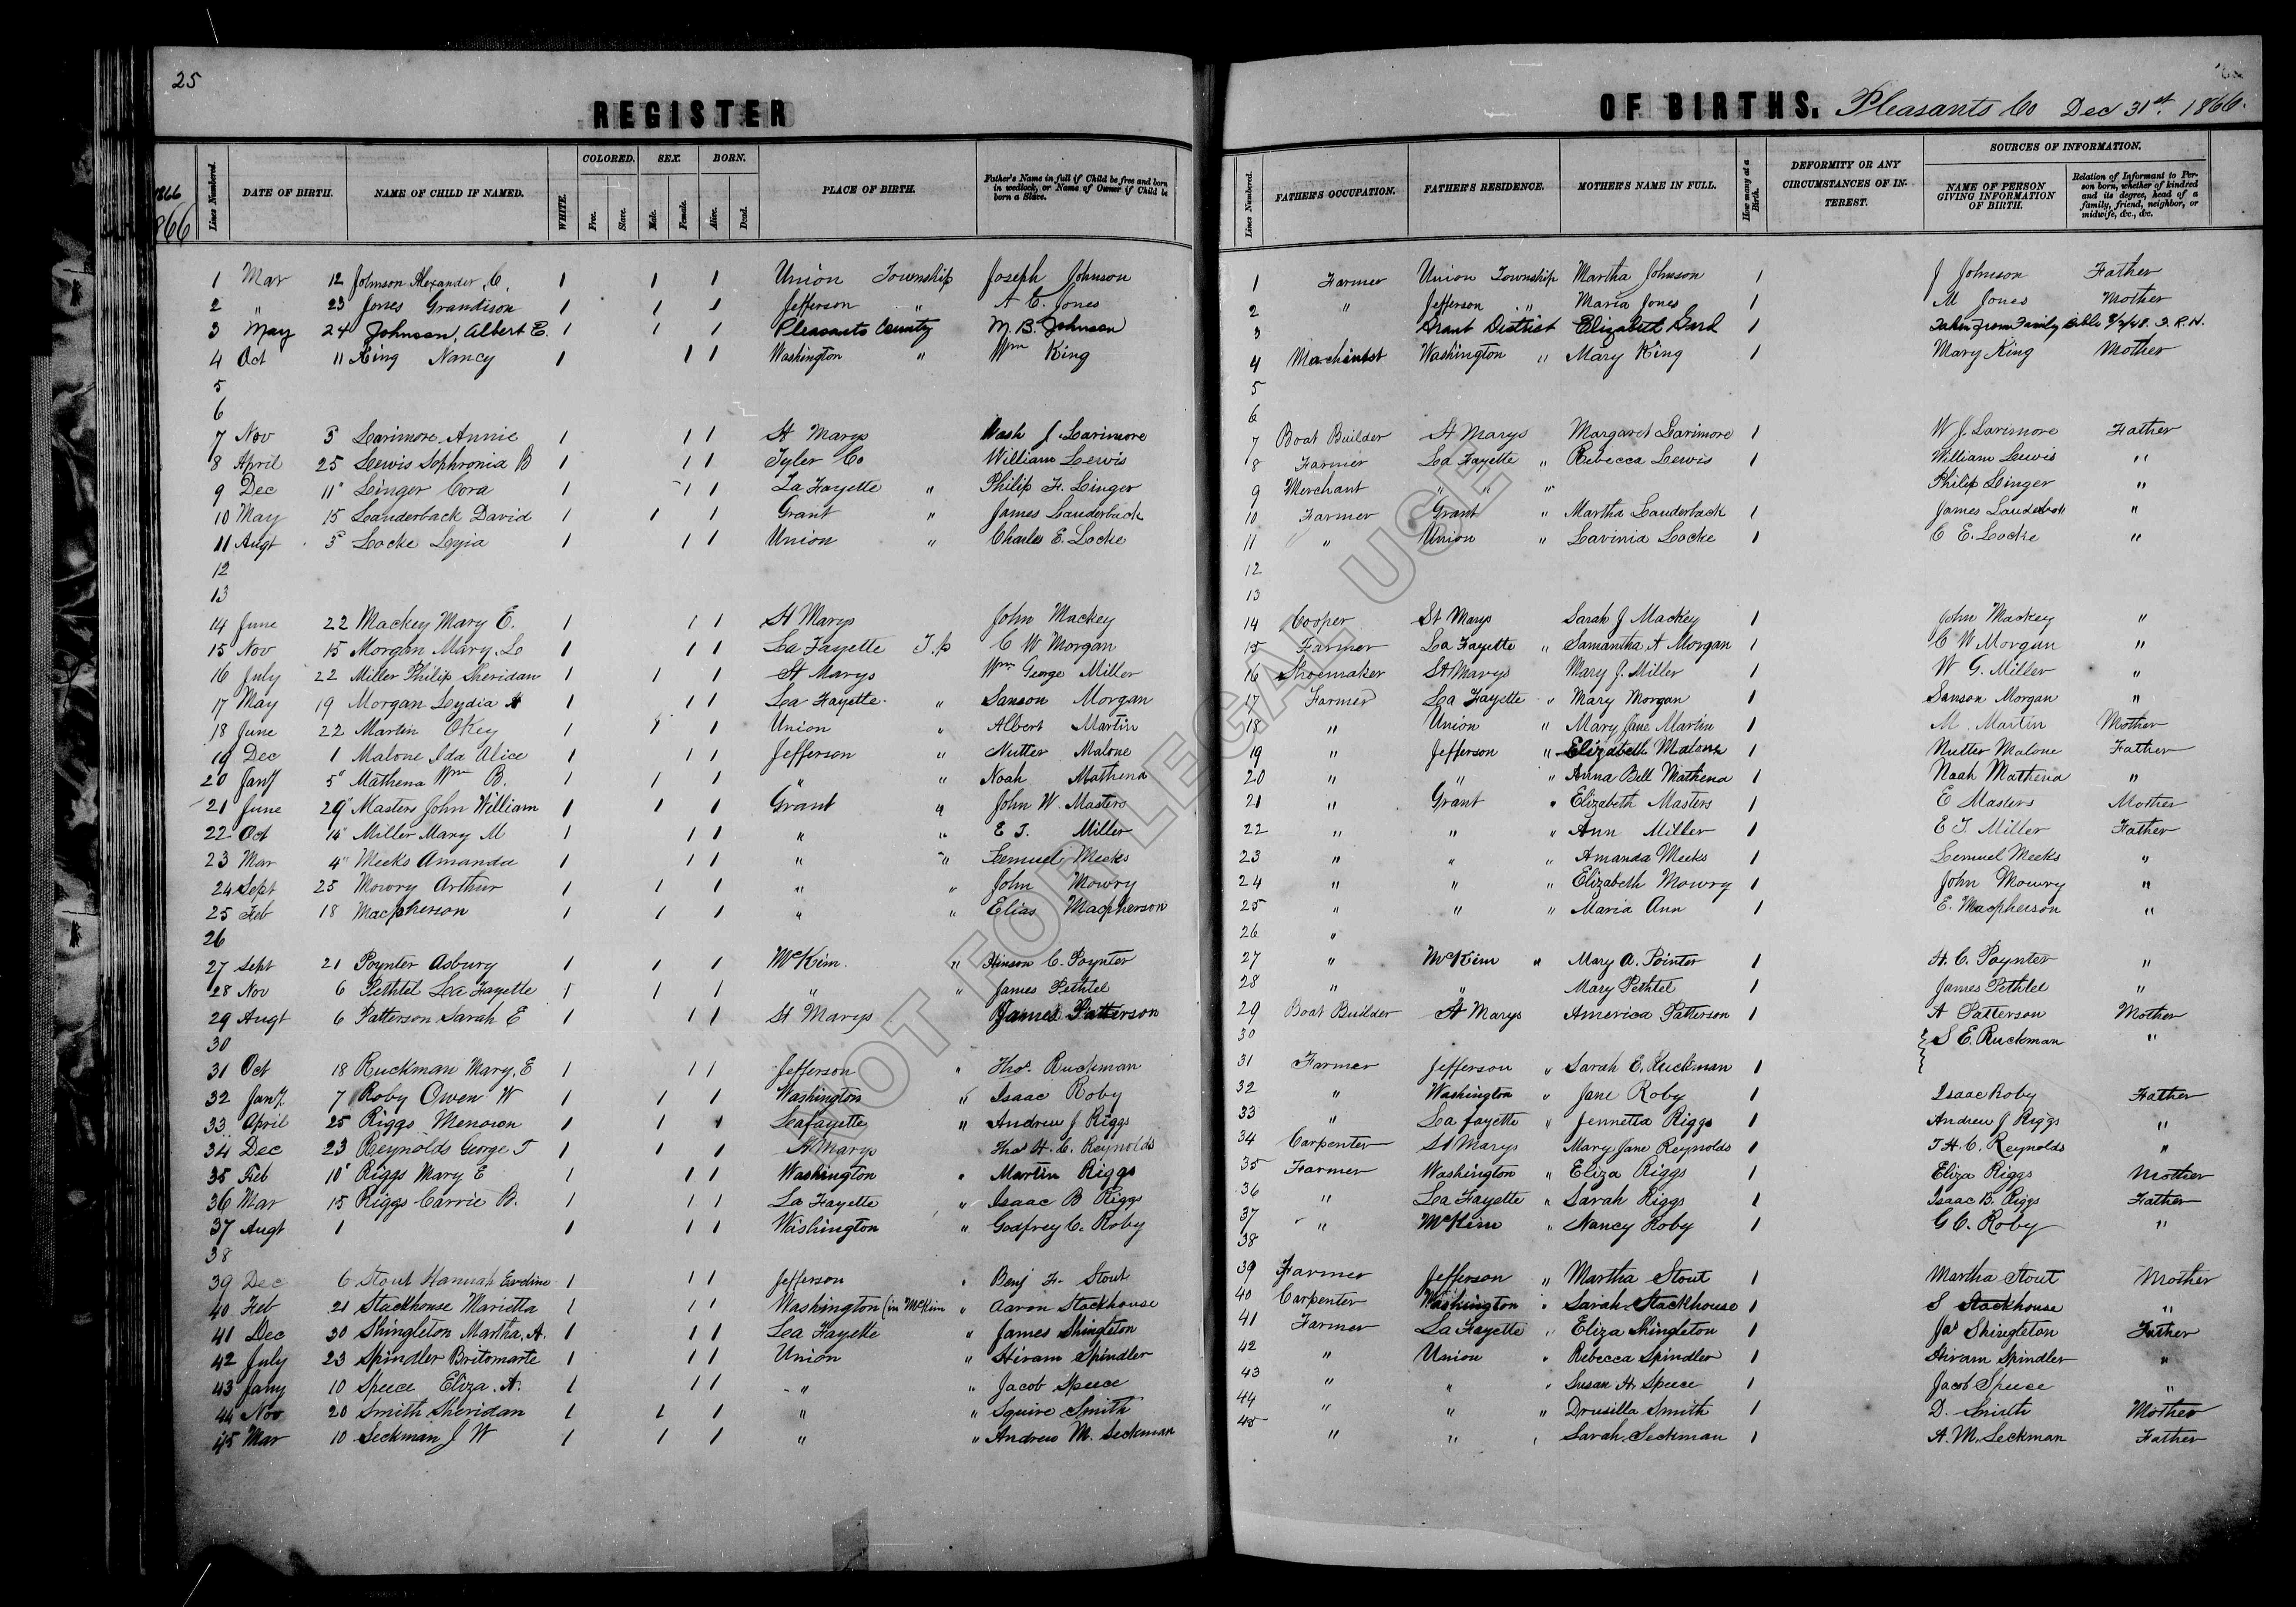 25
REGISTER
OF BIRTHS. Pleasants Co Dec 31st. 1866.
1866
866
Lines Numbered. DATE OF BIRTH. NAME OF CHILD IF NAMED. WHITE. COLORED. Free. Slave. SEX. Male. Female. BORN. Alive. Dead. PLACE OF BIRTH. Father's Name in full if Child be free and born in wedlock, or Name of Owner if Child be born a Slave.
Lines Numbered. FATHER'S OCCUPATION. FATHER'S RESIDENCE. MOTHER'S NAME IN FULL. How many at a Birth. DEFORMITY OR ANY CIRCUMSTANCES OF INTEREST. SOURCES OF INFORMATION. NAME OF PERSON GIVING INFORMATION OF BIRTH. Relation of Informant to Person born, whether of kindred and its degree, head of a family, friend, neighbor, or midwife, &c., &c.
1 Mar 12 Johnson Alexander, C. 1 1 1 Union Township Joseph Johnson
2 " 23 Jones Grandison 1 1 1 Jefferson " A C. Jones
3 May 24 Johnson, Albert E. 1 1 1 Pleasants County M. B. Johnson
4 Oct 11 King Nancy 1 1 1 Washington " Wm King
5
6
7 Nov 5 Larimore Annie 1 1 1 St Marys Wash J. Larimore
8 April 25 Lewis Sophronia B 1 1 1 Tyler Co William Lewis
9 Dec 11 Linger Cora 1 1 1 La Fayette " Philip F. Linger
10 May 15 Lauderback David 1 1 1 Grant " James Lauderback
11 Augt 5 Locke 1 1 1 Union " Charles E. Locke
12
13
14 June 22 Mackey Mary E. 1 1 1 St Marys John Mackey
15 Nov 15 Morgan Mary. L 1 1 1 La Fayette T.p C W Morgan
16 July 22 Miller Philip Sheridan 1 1 1 St Marys Wm George Miller
17 May 19 Morgan Lydia A 1 1 1 La Fayette " Sanson Morgan
18 June 22 Martin Okey 1 1 1 Union " Albert Martin
19 Dec 1 Malone Ida Alice 1 1 1 Jefferson " Nutter Malone
20 Jany 5 Mathena Wm B. 1 1 1 " " Noah Mathena
21 June 29 Masters John William 1 1 1 Grant " John W. Masters
22 Oct 14 Miller Mary M 1 1 1 " " E T. Miller
23 Mar 4 Meeks Amanda 1 1 1 " " Lemuel Meeks
24 Sept 25 Mowry Arthur 1 1 1 " " John Mowry
25 Feb 18 Macpherson 1 1 1 " " Elias Macpherson
26
27 Sept 21 Poynter Asbury 1 1 1 McKim. " Hinson C. Poynter
28 Nov 6 Pethtel La Fayette 1 1 1 " " James Pethtel
29 Augt 6 Patterson Sarah E 1 1 1 St Marys James Patterson
30
31 Oct 18 Ruckman Mary, E 1 1 1 Jefferson " Thos. Ruckman
32 Jany. 7 Roby Owen W 1 1 1 Washington " Isaac Roby
33 April 25 Riggs 1 1 1 Lafayette " Andrew J Riggs
34 Dec 23 Reynolds George T 1 1 1 St Marys Thos H. C. Reynolds
35 Feb 10 Riggs Mary E 1 1 1 Washington " Martin Riggs
36 Mar 15 Riggs Carrie B. 1 1 1 La Fayette " Isaac B Riggs
37 Augt 1 1 1 1 Washington " Godfrey C. Roby
38
39 Dec 6 Stout Hannah 1 1 1 Jefferson " Benj F. Stout
40 Feb 21 Stackhouse Marietta 1 1 1 Washington (in McKim " Aaron Stackhouse
41 Dec 30 Shingleton Martha, A. 1 1 1 La Fayette " James Shingleton
42 July 23 Spindler Britomarte 1 1 1 Union " Hiram Spindler
43 Jany 10 Speece Eliza. A. 1 1 1 " " Jacob Speece
44 Nov 20 Smith Sheridan 1 1 1 " " Squire Smith
45 Mar 10 Seckman J W 1 1 1 " " Andrew M. Seckman
1 Farmer Union Township Martha Johnson 1 J Johnson Father
2 " Jefferson " Maria Jones 1 M Jones Mother
3 Grant District Elizabeth 1 Taken from Family Bible
4 Machinist Washington " Mary King 1 Mary King Mother
5
6
7 Boat Builder St Marys Margaret Larimore 1 W J. Larimore Father
8 Farmer La Fayette " Rebecca Lewis 1 William Lewis "
9 Merchant " " " Philip Linger "
10 Farmer Grant " Martha Lauderback 1 James Lauderback "
11 " Union " Lavinia Locke 1 C E. Locke "
12
13
14 Cooper St Marys Sarah J Mackey 1 John Mackey "
15 Farmer La Fayette " Samantha A Morgan 1 C W Morgan "
16 Shoemaker St Marys Mary J. Miller 1 W G. Miller "
17 Farmer La Fayette " Mary Morgan 1 Sanson Morgan "
18 " Union " Mary Jane Martin 1 M Martin Mother
19 " Jefferson " Elizabeth Malone 1 Nutter Malone Father
20 " " " Anna Bell Mathena 1 Noah Mathena "
21 " Grant " Elizabeth Masters 1 E Masters Mother
22 " " " Ann Miller 1 E T. Miller Father
23 " " " Amanda Meeks 1 Lemuel Meeks "
24 " " " Elizabeth Mowry 1 John Mowry "
25 " " " Maria Ann 1 E. Macpherson "
26 "
27 " McKim " Mary A. Pointer 1 H. C. Poynter "
28 " " Mary Pethtel 1 James Pethtel "
29 Boat Builder St Marys America Patterson 1 A Patterson Mother
30 S E. Ruckman "
31 Farmer Jefferson " Sarah E. Ruckman 1
32 " Washington " Jane Roby 1 Isaac Roby Father
33 " La fayette " Jennetta Riggs 1 Andrew J Riggs "
34 Carpenter St Marys Mary Jane Reynolds 1 T H. C. Reynolds "
35 Farmer Washington " Eliza Riggs 1 Eliza Riggs Mother
36 " La Fayette " Sarah Riggs 1 Isaac B. Riggs Father
37 " McKim " Nancy Roby 1 G C. Roby "
38
39 Farmer Jefferson " Martha Stout 1 Martha Stout Mother
40 Carpenter Washington " Sarah Stackhouse 1 S Stackhouse "
41 Farmer La Fayette " Eliza Shingleton 1 Jas Shingleton Father
42 " Union " Rebecca Spindler 1 Hiram Spindler "
43 " " " Susan H. Speece 1 Jacob Speece "
44 " " " Drusilla Smith 1 D. Smith Mother
45 " " " Sarah Seckman 1 A. M. Seckman Father
NOT FOR LEGAL USE